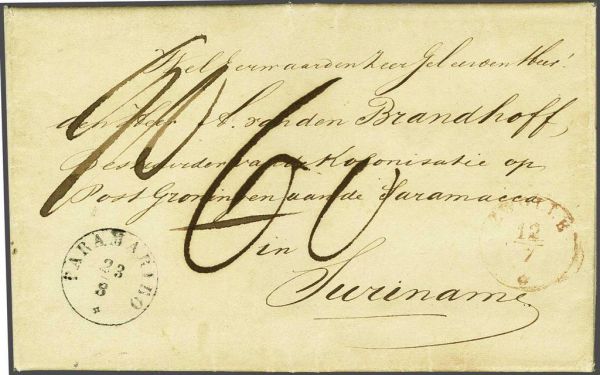 Wel Eerwaarden Zeer Geleerden Heer!
den Heer A. van den Brandhoff,
Bestuurder van de Kolonisatie op
Post Groningen aan de Saramacca
in
Suriname
60
PARAMARIBO
23
8
ZWOLLE
12
7